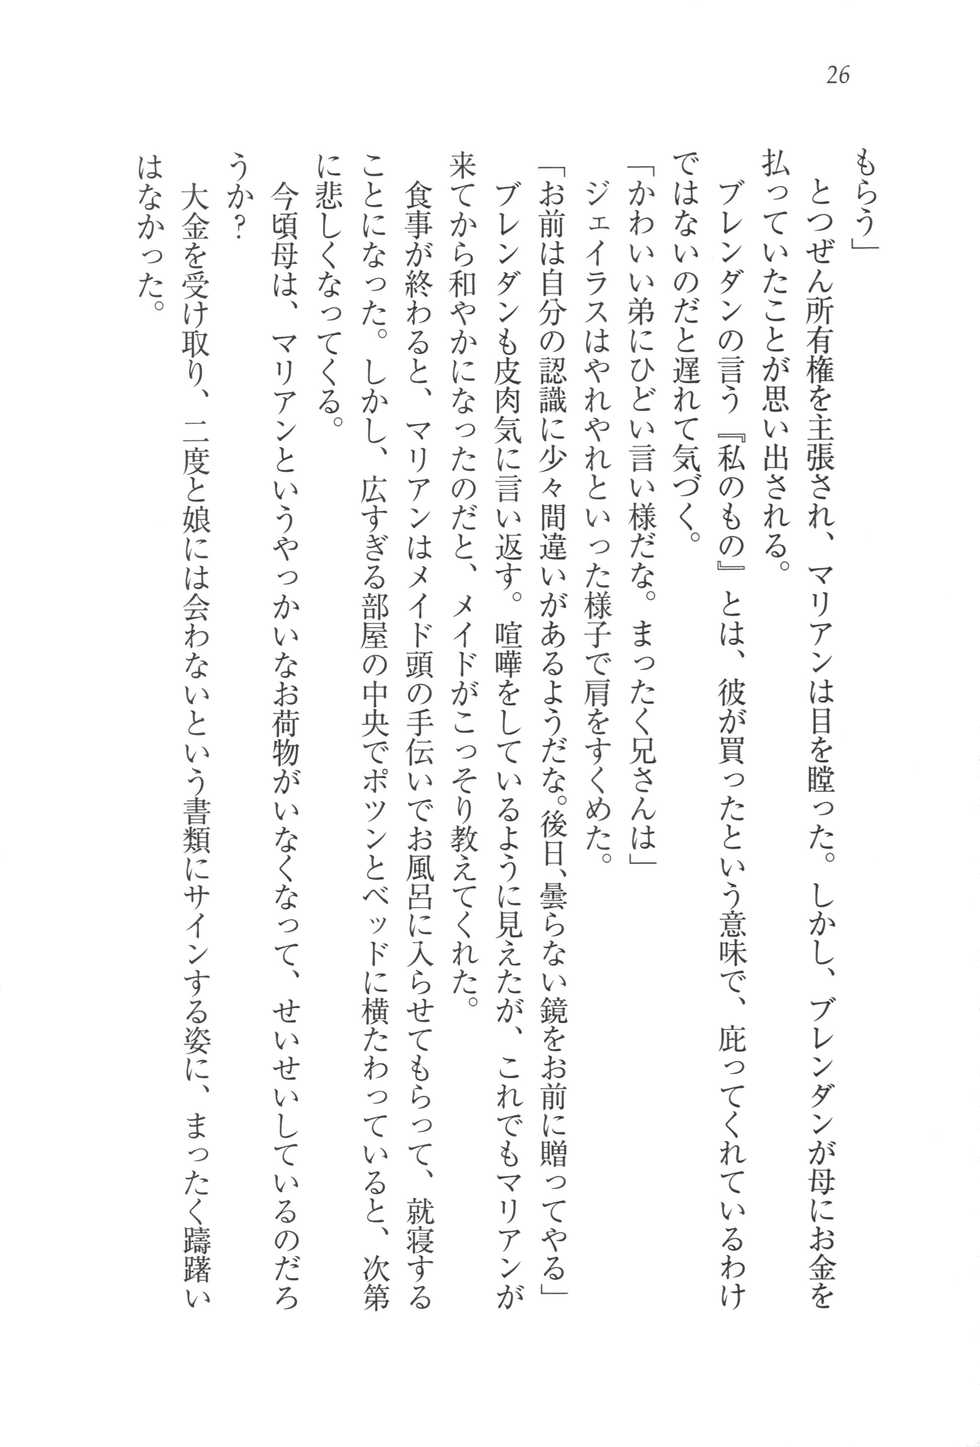 26
もらう」
　とつぜん所有権を主張され、マリアンは目を瞠った。しかし、ブレンダンが母にお金を
払っていたことが思い出される。
　ブレンダンの言う『私のもの』とは、彼が買ったという意味で、庇ってくれているわけ
ではないのだと遅れて気づく。
「かわいい弟にひどい言い様だな。まったく兄さんは」
　ジェイラスはやれやれといった様子で肩をすくめた。
「お前は自分の認識に少々間違いがあるようだな。後日、曇らない鏡をお前に贈ってやる」
　ブレンダンも皮肉気に言い返す。喧嘩をしているように見えたが、これでもマリアンが
来てから和やかになったのだと、メイドがこっそり教えてくれた。
　食事が終わると、マリアンはメイド頭の手伝いでお風呂に入らせてもらって、就寝する
ことになった。しかし、広すぎる部屋の中央でポツンとベッドに横たわっていると、次第
に悲しくなってくる。
　今頃母は、マリアンというやっかいなお荷物がいなくなって、せいせいしているのだろ
うか？
　大金を受け取り、二度と娘には会わないという書類にサインする姿に、まったく躊躇い
はなかった。